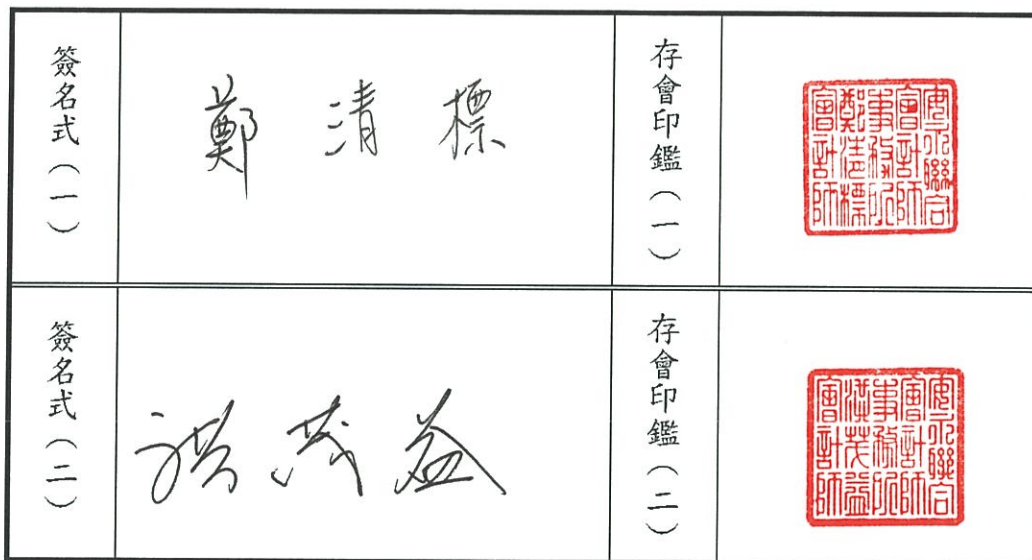 簽名式(一)
鄭清標
存會印鑑(一)
安永聯合
會計師
事務所
鄭清標
會計師
簽名式(二)
洪茂益
存會印鑑(二)
安永聯合
會計師
事務所
洪茂益
會計師